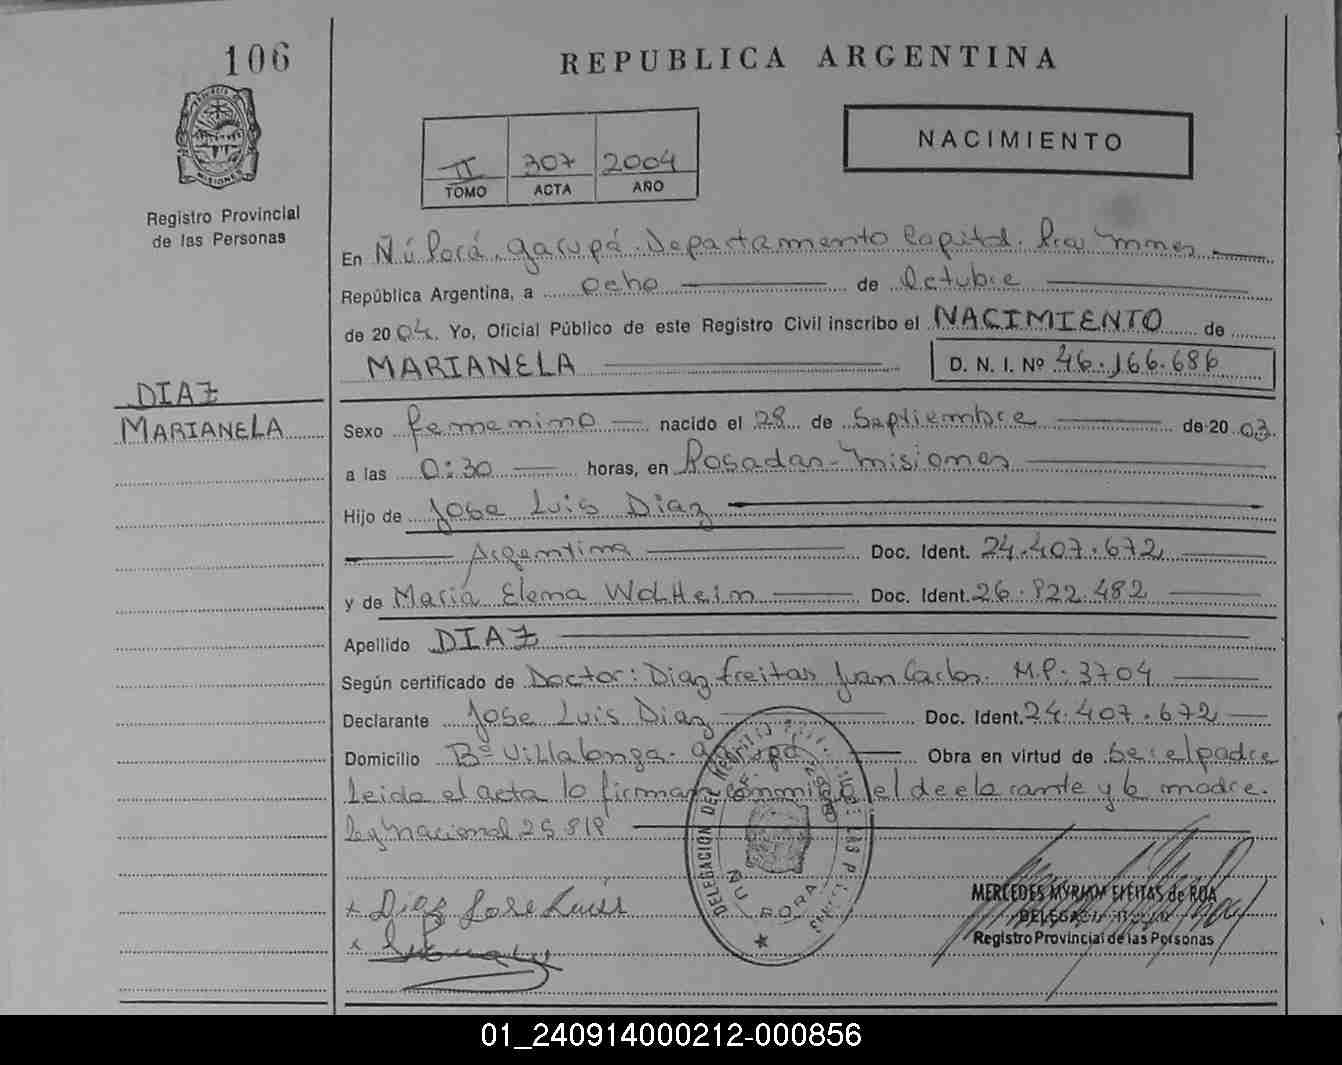 106
REPUBLICA ARGENTINA
NACIMIENTO
II 307 2004
TOMO ACTA AÑO
Registro Provincial
de las Personas
En Ñú Porá, Garupá. Departamento Capital. Pcia Mnes
República Argentina, a ocho de Octubre
de 2004. Yo, Oficial Público de este Registro Civil inscribo el NACIMIENTO de
MARIANELA D. N. I. Nº 46.166.686
DIAZ
MARIANELA
Sexo femenino nacido el 28 de Septiembre de 2003
a las 0:30 horas, en Posadas-Misiones
Hijo de Jose Luis Diaz
Argentina Doc. Ident. 24.407.672
y de María Elena Doc. Ident. 26.822.482
Apellido DIAZ
Según certificado de Doctor: Diaz Freitas Juan Carlos. M.P: 3704
Declarante Jose Luis Diaz Doc. Ident. 24.407.672
Domicilio Bº Villalonga. Garupá Obra en virtud de ser el padre
Leida el acta lo firman conmigo el declarante y la madre.
Ley Nacional 25.818
x Diaz Jose Luis
x
DELEGACION DEL REGISTRO PROV. DE LAS PERSONAS
ÑU PORA
MERCEDES MYRIAM FLEITAS de ROA
Registro Provincial de las Personas
01_240914000212-000856